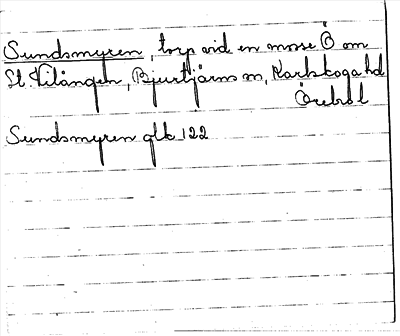 Sundsmyren, torp vid en mosse Ö om
St. Vilången, Bjurtjärns sn, Karlskoga hd
Örebro l
Sundsmyren glk 122